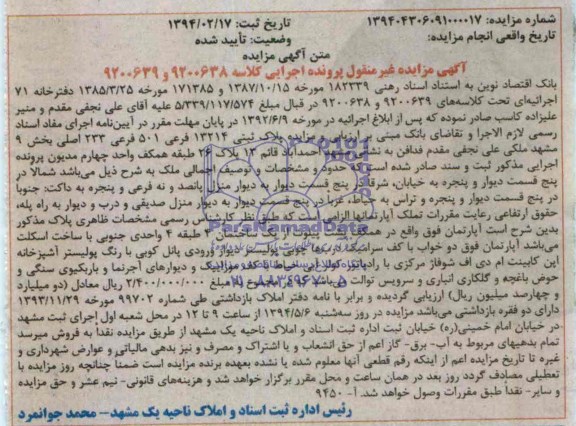 شماره مزایده: ۱۳۹۴۰۴۳۰۶۰۹۱۰۰۰۰۱۷
تاریخ ثبت: ۱۳۹۴/۰۲/۱۷
تاریخ واقعی انجام مزایده:
وضعیت: تأیید شده
متن آگهی مزایده
آگهی مزایده غیرمنقول پرونده اجرایی کلاسه ۹۲۰۰۶۳۸ و ۹۲۰۰۶۳۹
بانک اقتصاد نوین به استناد اسناد رهنی ۱۸۲۳۳۹ مورخه ۱۳۸۷/۱۰/۱۵ و ۱۷۱۳۸۵ مورخه ۱۳۸۵/۳/۲۵ دفترخانه ۷۱
اجرائیه‌ای تحت کلاسه‌های ۹۲۰۰۶۳۹ و ۹۲۰۰۶۳۸ در قبال مبلغ ۵/۳۳۹/۱۱۷/۵۷۴ علیه آقای علی نجفی مقدم و منیر
علیزاده کاسب صادر نموده که پس از ابلاغ اجرائیه در مورخه ۱۳۹۲/۶/۹ در پایان مهلت مقرر در آیین‌نامه اجرای مفاد اسناد
رسمی لازم الاجرا و تقاضای بانک مبنی بر ارزیابی و مزایده پلاک ثبتی ۱۳۲۱۴ فرعی ۵۰۱ فرعی ۲۳۳ اصلی بخش ۹
مشهد ملکی علی نجفی مقدم فدافن به احمدآباد قائم پلاک طبقه همکف واحد چهارم مدیون پرونده
اجرایی مذکور ثبت و سند صادر شده است که حدود و مشخصات و توصیف اجمالی ملک به شرح ذیل می‌باشد شمالا در
پنج قسمت دیوار و پنجره به خیابان، شرقا در پنج قسمت دیوار به دیوار منزل پانصد و نه فرعی و پنجره به داکت: جنوبا
در پنج قسمت دیوار و پنجره و تراس به حیاط، غربا در پنج قسمت دیوار به دیوار منزل صدیقی و درب و دیوار به راه پله،
حقوق ارتفاعی رعایت مقررات تملک آپارتمانها الزامی است که طبق نظر کارشناس رسمی مشخصات ظاهری پلاک مذکور
بدین شرح است آپارتمان فوق واقع در همکف از یک ساختمان ۴ طبقه ۴ واحدی جنوبی با ساخت اسکلت
می‌باشد آپارتمان فوق دو خواب با کف سرامیک دربها چوبی پولیستر دیوار ورودی پانل کوبی با رنگ پولیستر آشپزخانه
اپن کابینت ام دی اف شوفاژ مرکزی با رادیاتور کولر آبی حیاط با کف موزائیک و دیوارهای آجرنما و باربکیوی سنگی و
حوض باغچه و گلکاری انباری و سرویس توالت می‌باشد مبلغ ۲/۴۰۰/۰۰۰/۰۰۰ ریال معادل (دو میلیارد
و چهارصد میلیون ریال) ارزیابی گردیده و برابر با نامه دفتر املاک بازداشتی طی شماره ۹۹۷۰۲ مورخه ۱۳۹۳/۱۱/۲۹
دارای دو فقره بازداشتی می‌باشد مزایده در روز سه‌شنبه ۱۳۹۴/۵/۶ از ساعت ۹ تا ۱۲ در محل شعبه اول اجرای ثبت مشهد
در خیابان امام خمینی(ره) خیابان ثبت اداره ثبت اسناد و املاک ناحیه یک مشهد از طریق مزایده نقدا به فروش میرسد
تمام بدهیهای مربوط به آب- برق- گاز اعم از حق انشعاب و یا اشتراک و مصرف و نیز بدهی مالیاتی و عوارض شهرداری و
غیره تا تاریخ مزایده اعم از اینکه رقم قطعی آنها معلوم شده یا نشده بعهده برنده مزایده است ضمنا چنانچه روز مزایده با
تعطیلی مصادف گردد روز بعد در همان ساعت و محل مقرر برگزار خواهد شد و هزینه‌های قانونی- نیم عشر و حق مزایده
و سایر- نقدا طبق مقررات وصول خواهد شد. آ- ۹۴۵۰
رئیس اداره ثبت اسناد و املاک ناحیه یک مشهد- محمد جوانمرد
ParsNamadData
۰۲۱-۸۸۳۴۹۶۷۰-۵